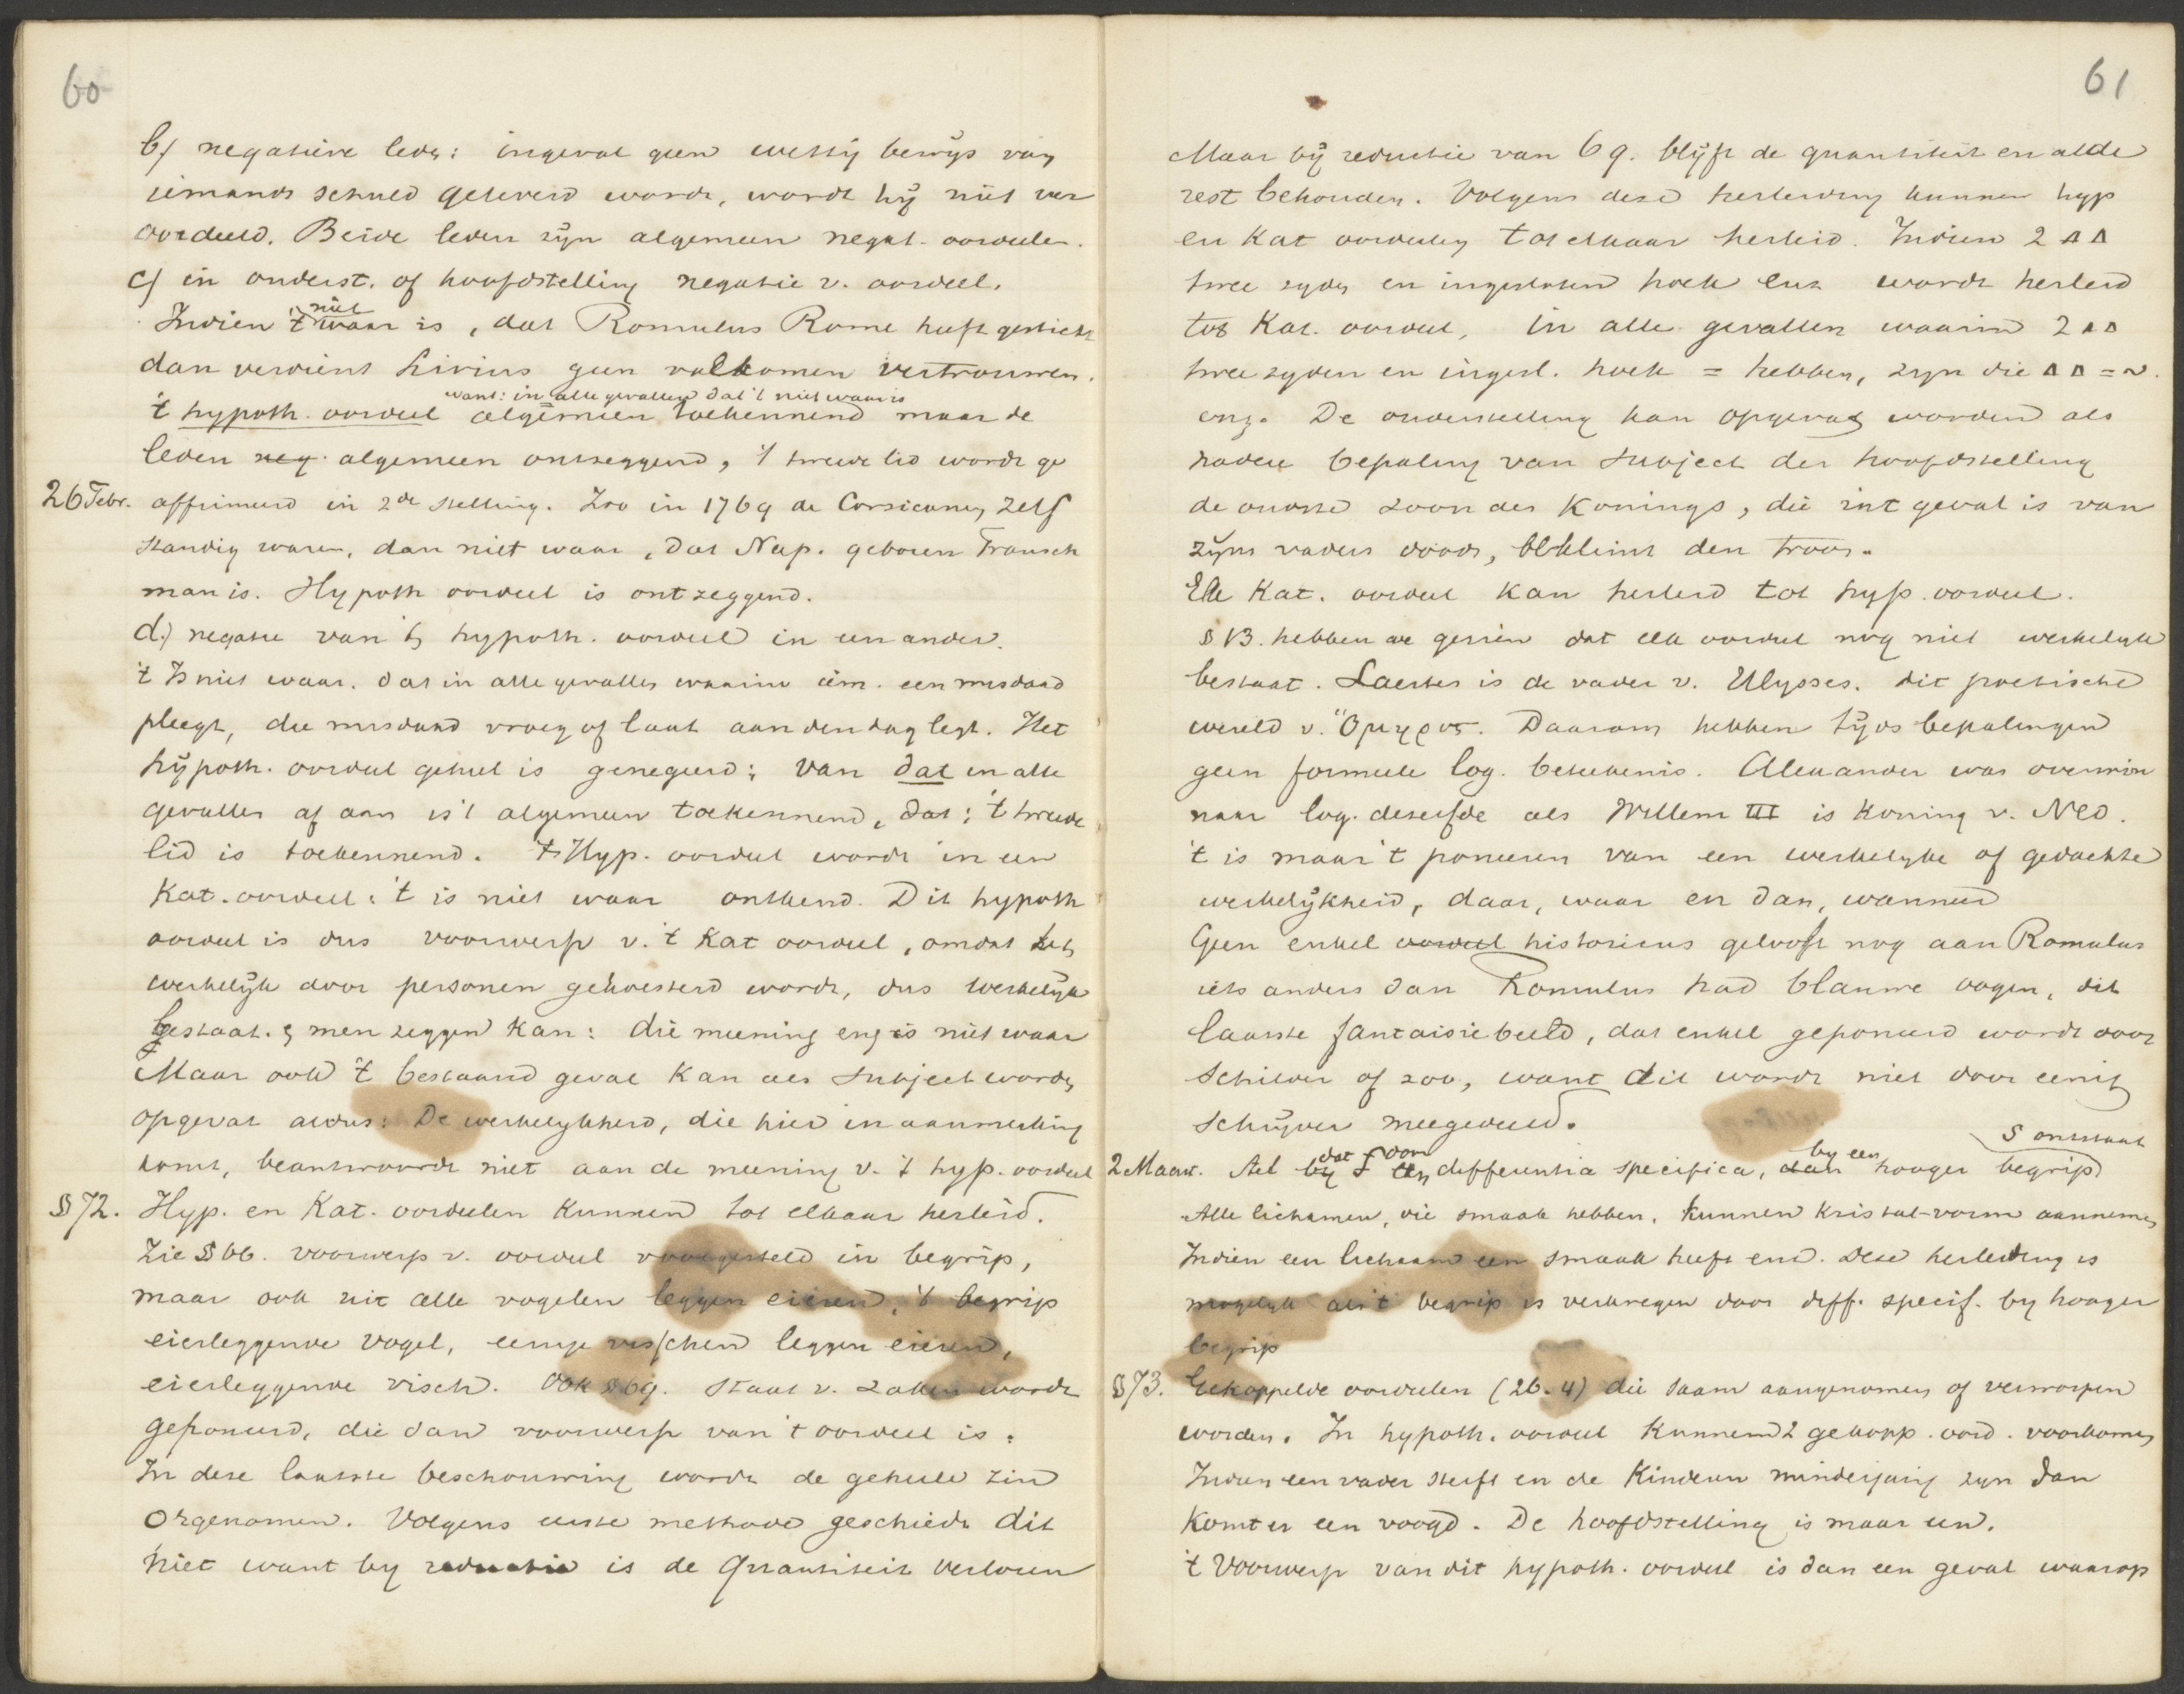 60
b) negatieve leden: ingeval geen wettig bewijs van
iemands schuld geleverd wordt, wordt hij niet ver
oordeeld. Beide leden zijn algemeen negat. oordeelen.
c) in onderst. of hoofdstelling negatie v. oordeel.
Indien 't niet waar is, dat Romulus Rome heeft gesticht
dan verdient Livius geen volkomen vertrouwen.
want: in alle gevallen dat 't niet waar is
't hypoth. oordeel algemeen toekennend maar de
leden neg. algemeen ontzeggend, 't tweede lid wordt ge
26 Febr. affirmeerd in 2de stelling. Zoo in 1769 de Corsicanen zelf
standig waren, dan niet waar, dat Nap. geboren Fransch
man is. Hypoth oordeel is ontzeggend.
d.) negatie van 't hypoth. oordeel in een ander.
't Is niet waar. dat in alle gevallen waarin iem. een misdaad
pleegt, die misdaad vroeg of laat aan den dag legt. Het
hypoth. oordeel geheel is genegeerd; van dat in alle
gevallen af aan is 't algemeen toekennend, dat; 't tweede
lid is toekennend. 't Hyp. oordeel wordt in een
Kat. oordeel: 't is niet waar ontkend. Dit hypoth
oordeel is dus voorwerp v. 't Kat oordeel, omdat het
werkelijk door personen gekoesterd wordt, dus werkelijk
bestaat. & men zeggen kan: die meening enz is niet waar
Maar ook 't bestaand geval kan als subject worden
opgevat aldus: De werkelykheid, die hier in aanmerking
komt, beantwoordt niet aan de meening v. 't hyp. oordeel
§ 72. Hyp. en Kat. oordeelen kunnen tot elkaar herleid.
Zie § 66. voorwerp v. oordeel voorgesteld in begrip,
maar ook uit alle vogelen leggen eieren, 't begrip
eierleggende vogel, eenige visschen leggen eieren,
eierleggende visch. Ook § 69. Staat v. zaken wordt
geponeerd, die dan voorwerp van 't oordeel is.
In deze laatste beschouwing wordt de geheele zin
opgenomen. Volgens eerste methode geschiedt dit
niet want by reductie is de Quantiteit verloren
61
Maar bij reductie van 69. blijft de quantiteit en al de
rest behouden. Volgens deze herleiding kunnen hyp
en Kat oordeelen tot elkaar herleid. Indien 2 Δ Δ
twee zyden en ingesloten hoek enz wordt herleid
tot Kat. oordeel, in alle gevallen waarin 2 Δ Δ
twee zyden en ingesl. hoek = hebben, zyn die Δ Δ = ~.
enz. De onderstelling kan opgevat worden als
nadere bepaling van subject der hoofdstelling
de oudste zoon des Konings, die in 't geval is van
zijns vaders dood, beklimt den troon.
Elk Kat. oordeel kan herleid tot hyp. oordeel.
§ 13. hebben we gezien dat elk oordeel nog niet werkelyk
bestaat. Laertes is de vader v. Ulysses. dit poetische
wereld v. Ὅμηρος. Daarom hebben tijds bepalingen
geen formeele log. beteekenis. Alexander was overwin
naar log. dezelfde als Willem III is Koning v. Ned.
't is maar 't poneeren van een werkelyke of gedachte
werkelijkheid, daar, waar en dan, wanneer
Geen enkel oordeel historicus gelooft nog aan Romulus
iets anders dan Romulus had blauwe oogen, dit
laatste fantaisiebeeld, dat enkel geponeerd wordt door
Schilder of zoo, want dit wordt niet door eenig
Schrijver meegedeeld.
2 Maart. Stel by dat S door een differentia specifica, dan by een hooger begrip S ontstaat
Alle lichamen, die smaak hebben, kunnen kristal-vorm aannemen
Indien een lichaam een smaak heeft enz. Deze herleiding is
mogelyk als 't begrip is verkregen door diff. specif. by hooger
begrip
§ 73. Gekoppelde oordeelen (26.4) die saam aangenomen of verworpen
worden. In hypoth. oordeel kunnen 2 gekopp. oord. voorkomen
Indien een vader sterft en de Kinderen minderjarig zyn dan
Komt er een voogd. De hoofdstelling is maar een.
't Voorwerp van dit hypoth. oordeel is dan een geval waarop